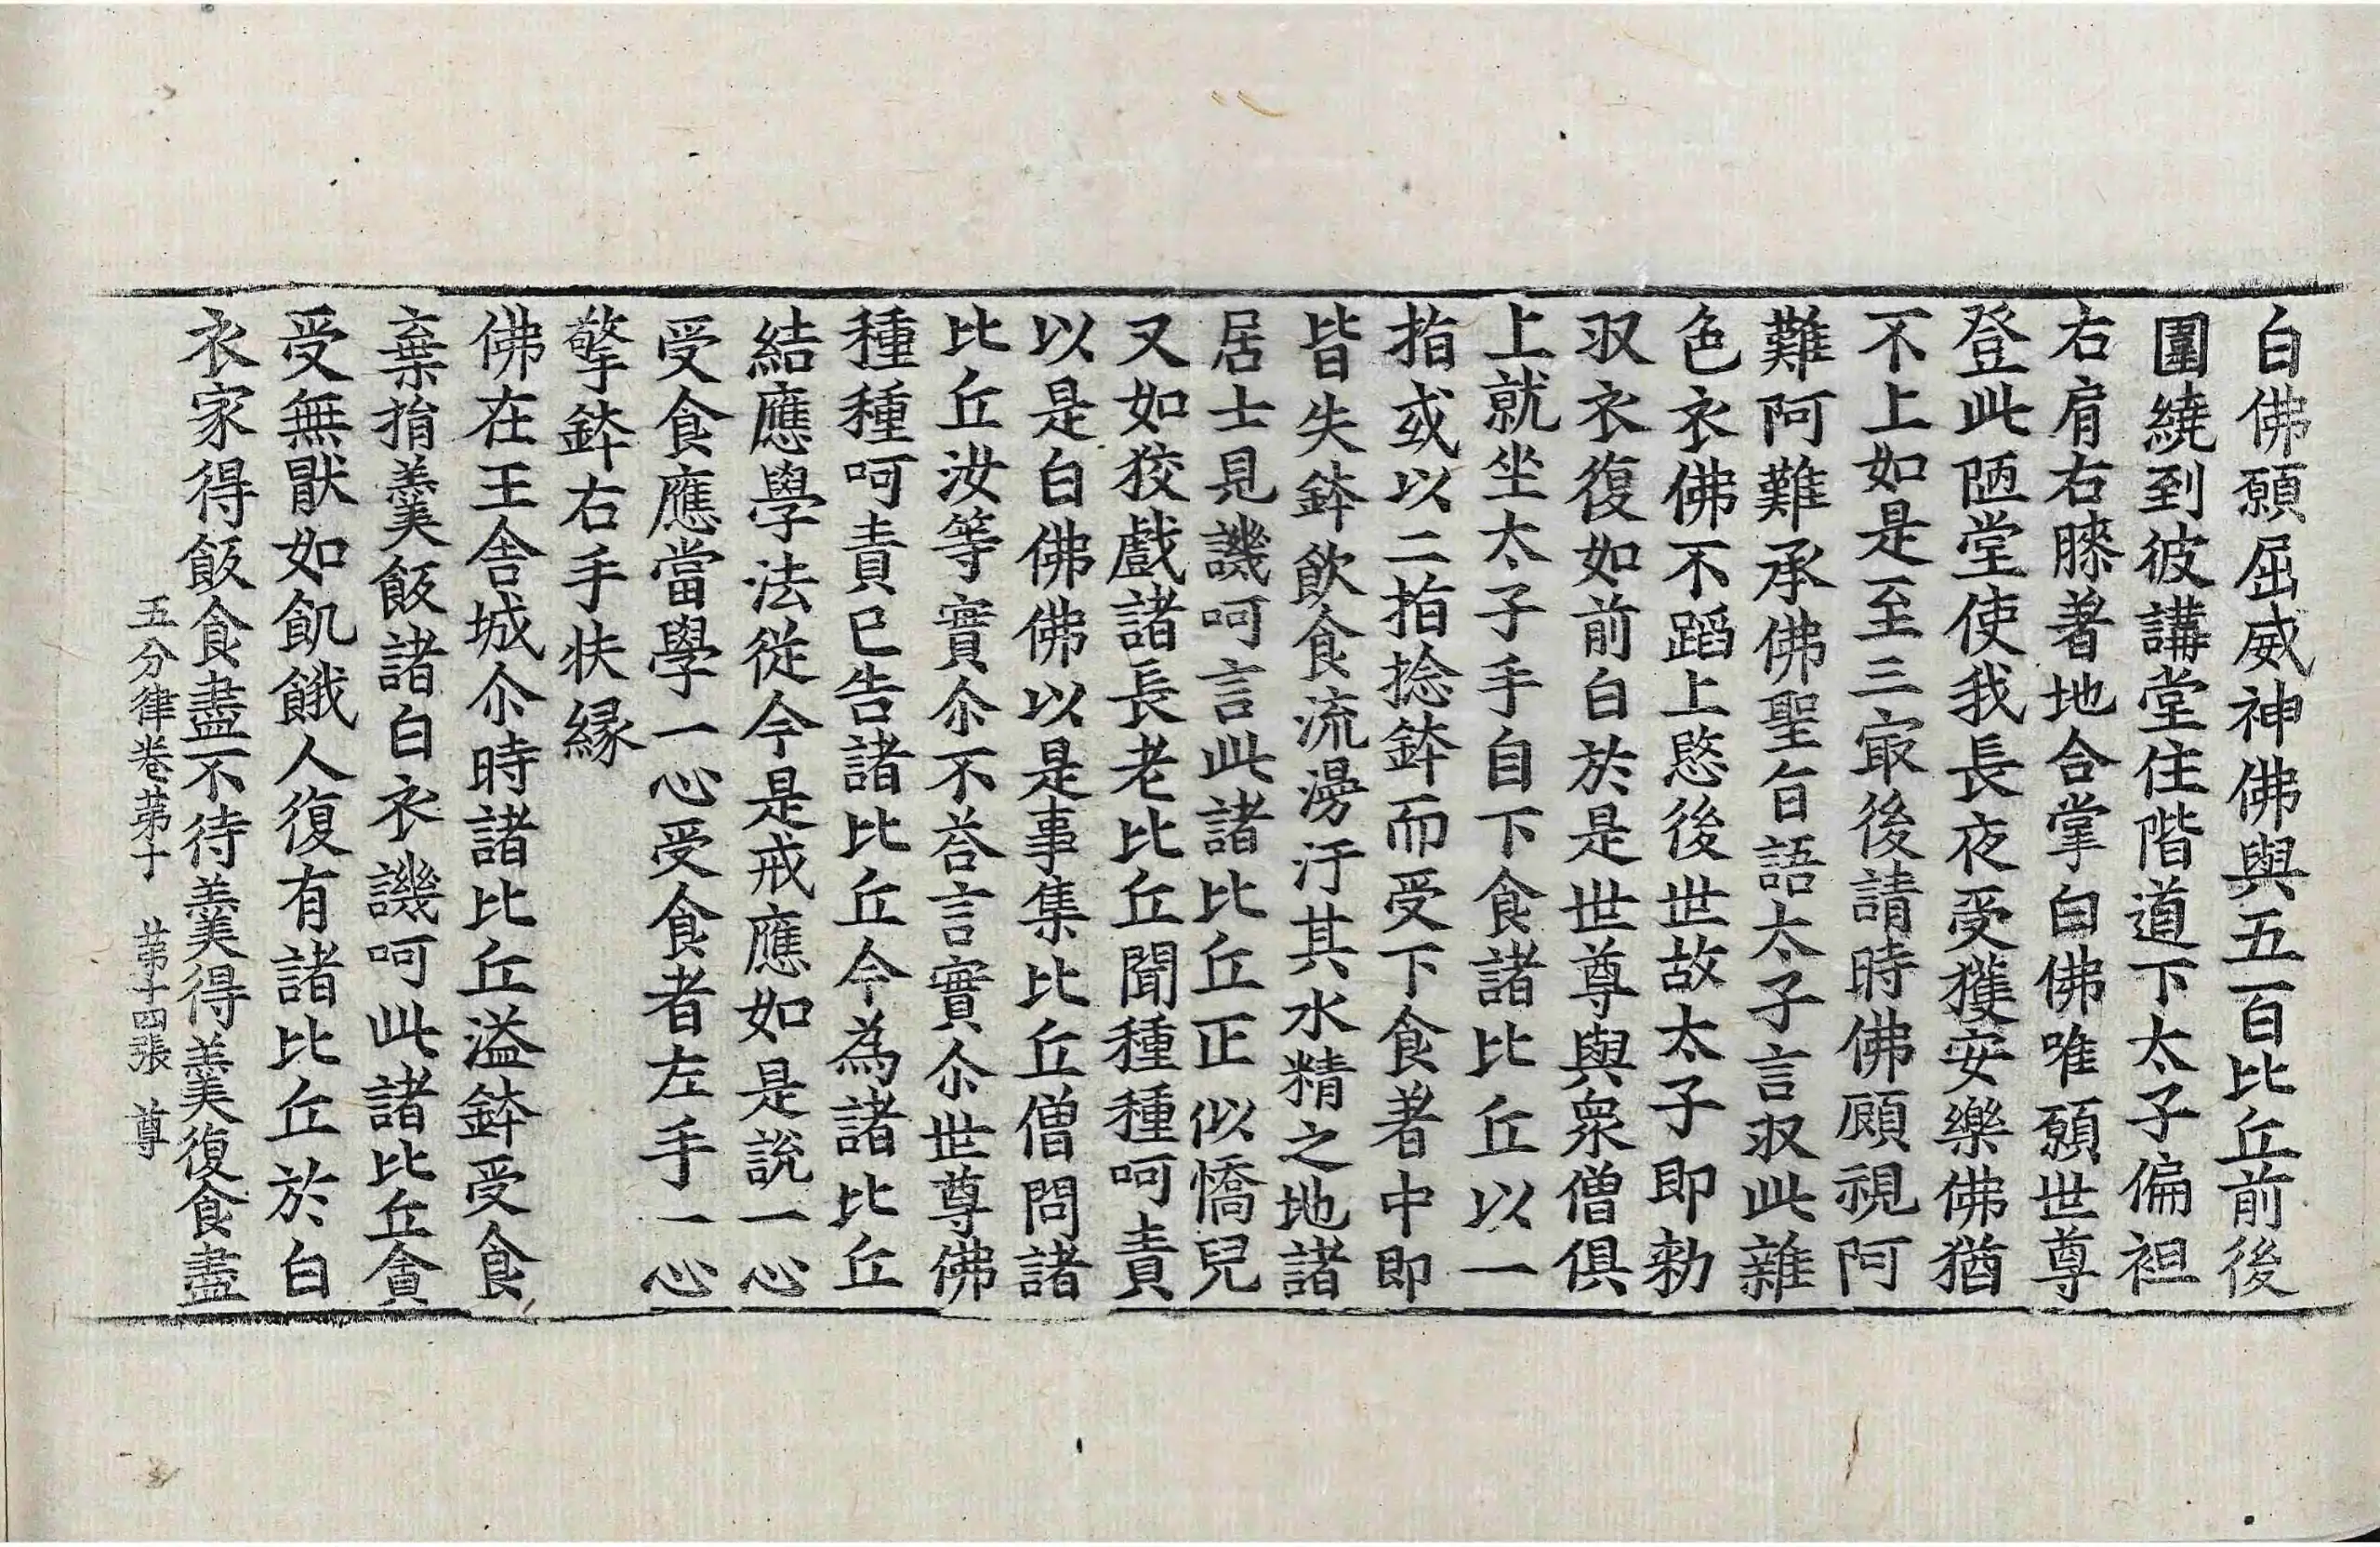 白佛願屈威神佛與五百比丘前後
圍繞到彼講堂住階道下太子偏袒
右肩右膝著地合掌白佛唯願世尊
登此陋堂使我長夜受獲安樂佛猶
不上如是至三㝡後請時佛顧視阿
難阿難承佛聖旨語太子言㕛此雜
色衣佛不蹈上愍後世故太子即勑
㕛衣復如前白於是世尊與衆僧俱
上就坐太子手自下食諸比丘以一
指或以二指捻鉢而受下食著中即
皆失鉢飲食流漫汙其水精之地諸
居士見譏呵言此諸比丘正似憍兒
又如狡戲諸長老比丘聞種種呵責
以是白佛佛以是事集比丘僧問諸
比丘汝等實尒不荅言實尒世尊佛
種種呵責已告諸比丘今為諸比丘
結應學法從今是戒應如是說一心
受食應當學一心受食者左手一心
擎鉢右手扶緣
佛在王舍城尒時諸比丘溢鉢受食
棄捐羹飯諸白衣譏呵此諸比丘貪
受無猒如飢餓人復有諸比丘於白
衣家得飯食盡不待羹得羹復食盡
五分律卷苐十　苐十四張　尊